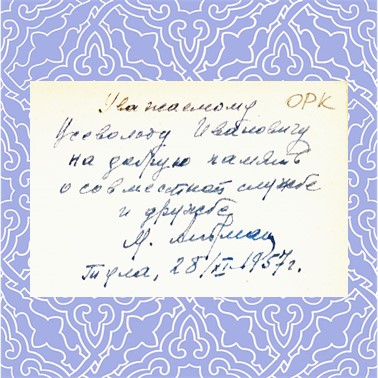 Уважаемому
ОРК
Всеволоду Ивановичу
на добрую память
о совместной службе
и дружбе
М. Либман
Тула, 28/XI-1957г.